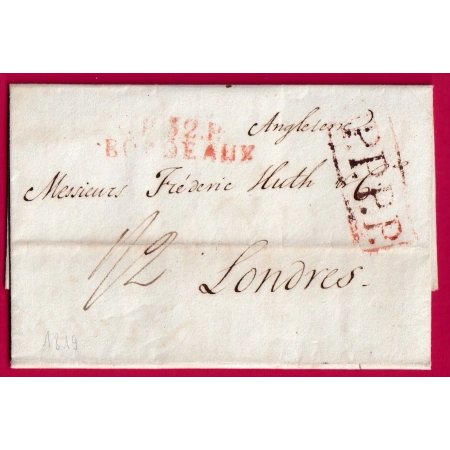 P.32.P.
BORDEAUX
Angleterre
P.P.P.P.
Messieurs Fréderic Huth & Co
1/2 Londres.
1819